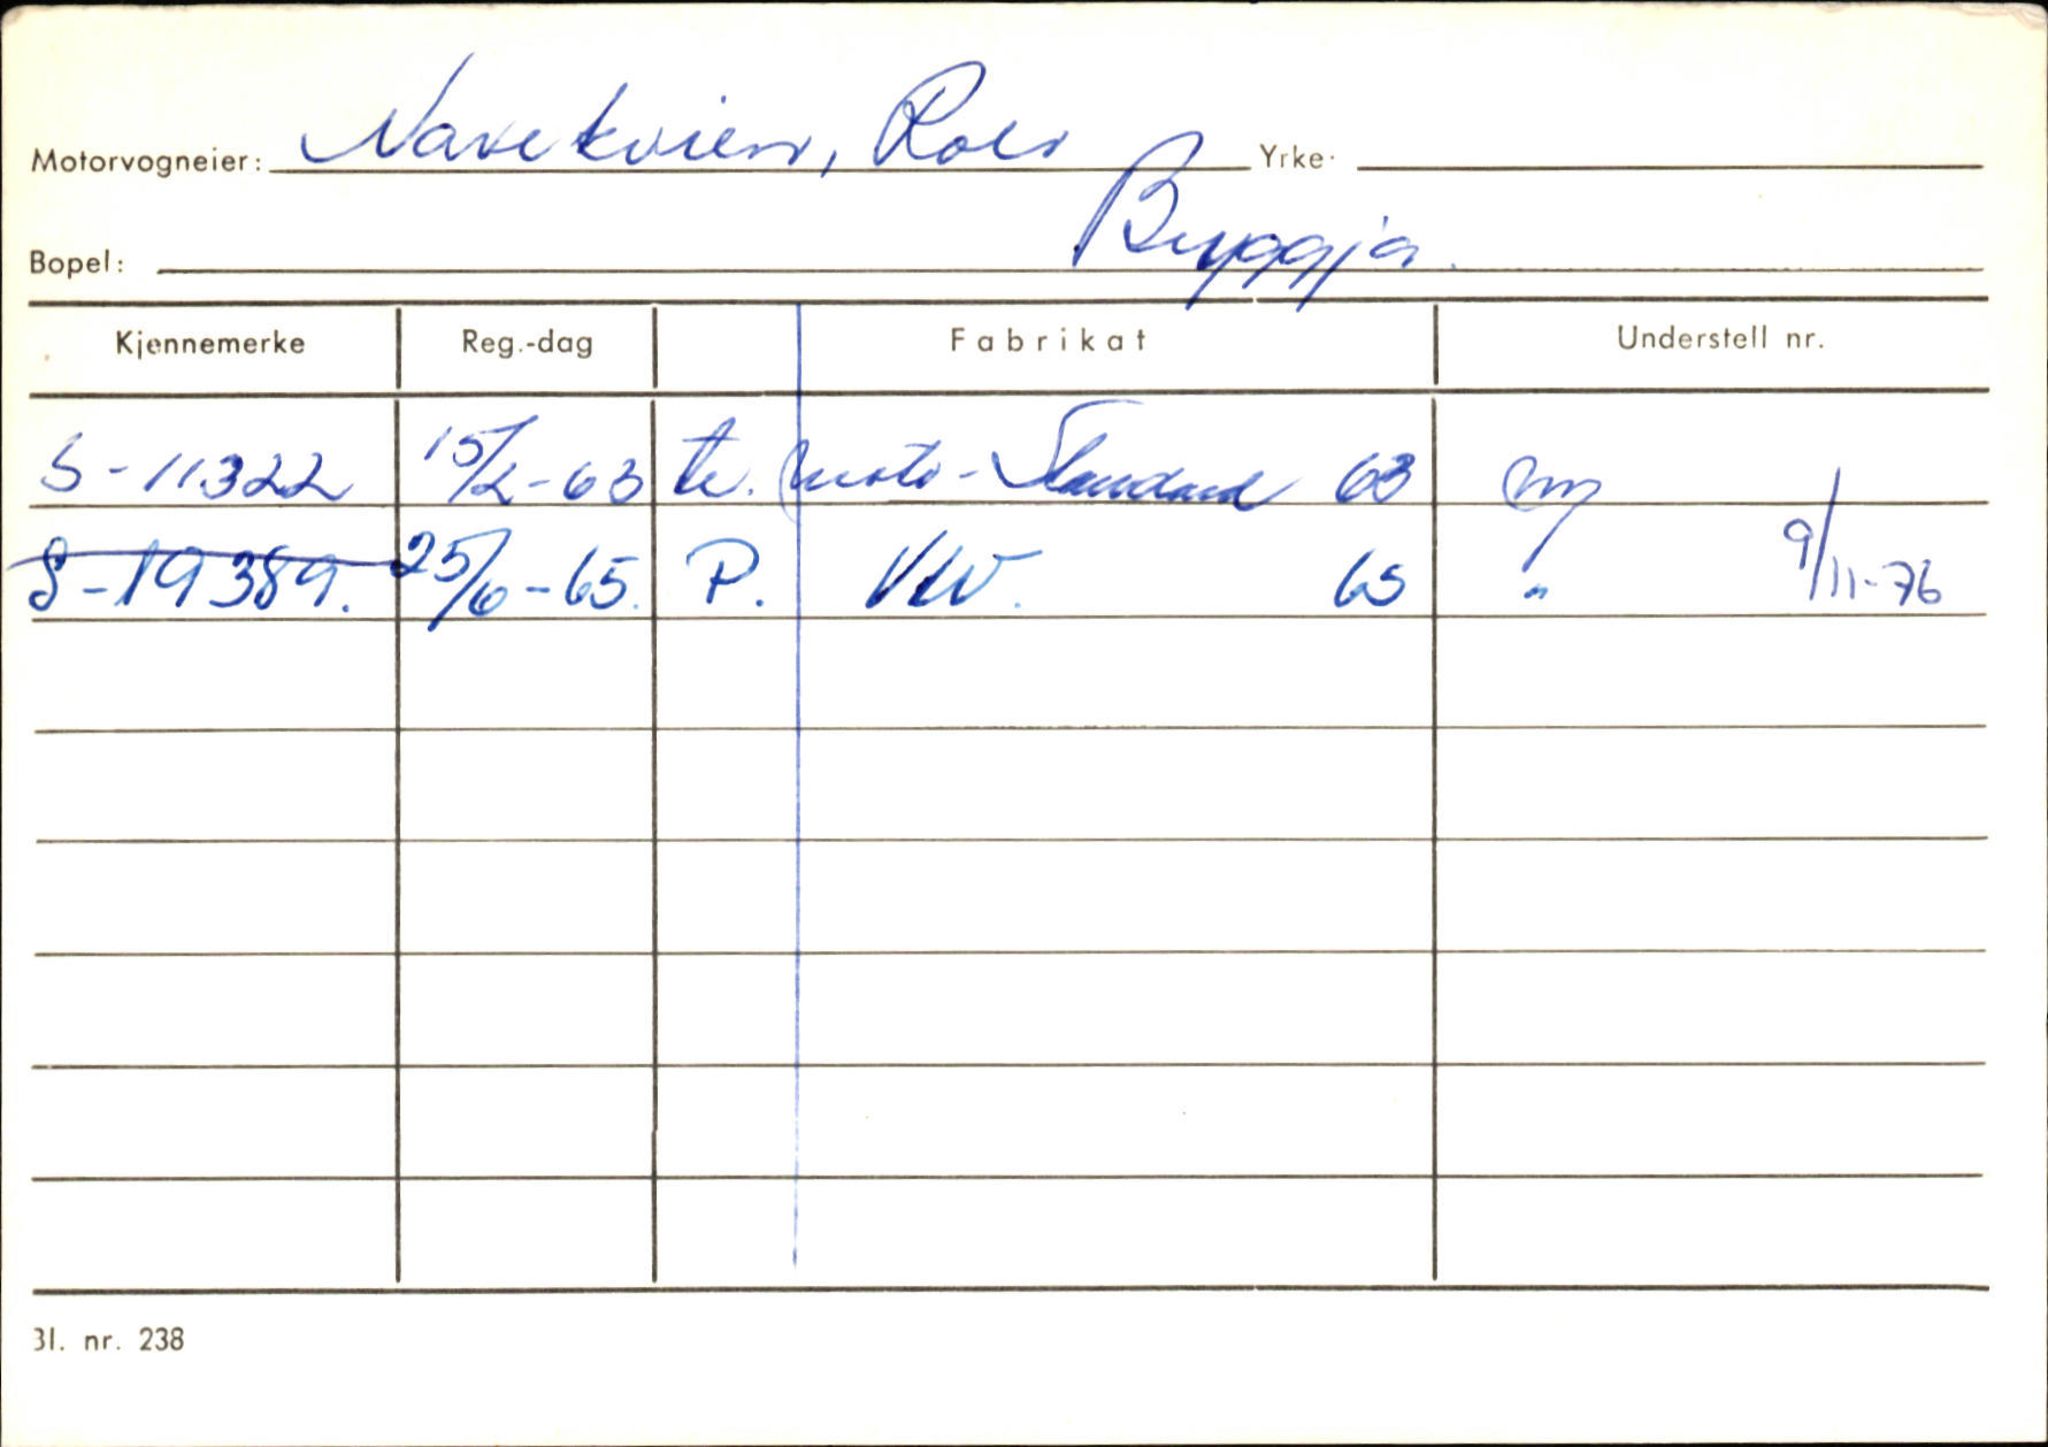 Motorvogneier: Navekvien, Rolv Yrke
Bopel: Bryggja
Kjennemerke Reg.-dag Fabrikat Understell nr.
S-11322 15/2-63 tr. moto-Standard 63 ny
S-19389. 25/6-65. P. VW. 65 " 9/11-76
Bl. nr. 238